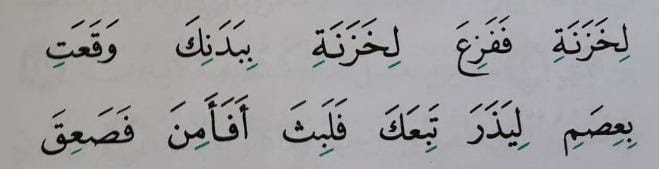 لِخَزَنَةِ فَفَزِعَ لِخَزَنَةِ بِبَدَنِكَ وَقَعَتِ
بِعِصَمِ لِيَذَرَ تَبِعَكَ فَلَبِثَ أَفَأَمِنَ فَصَعِقَ